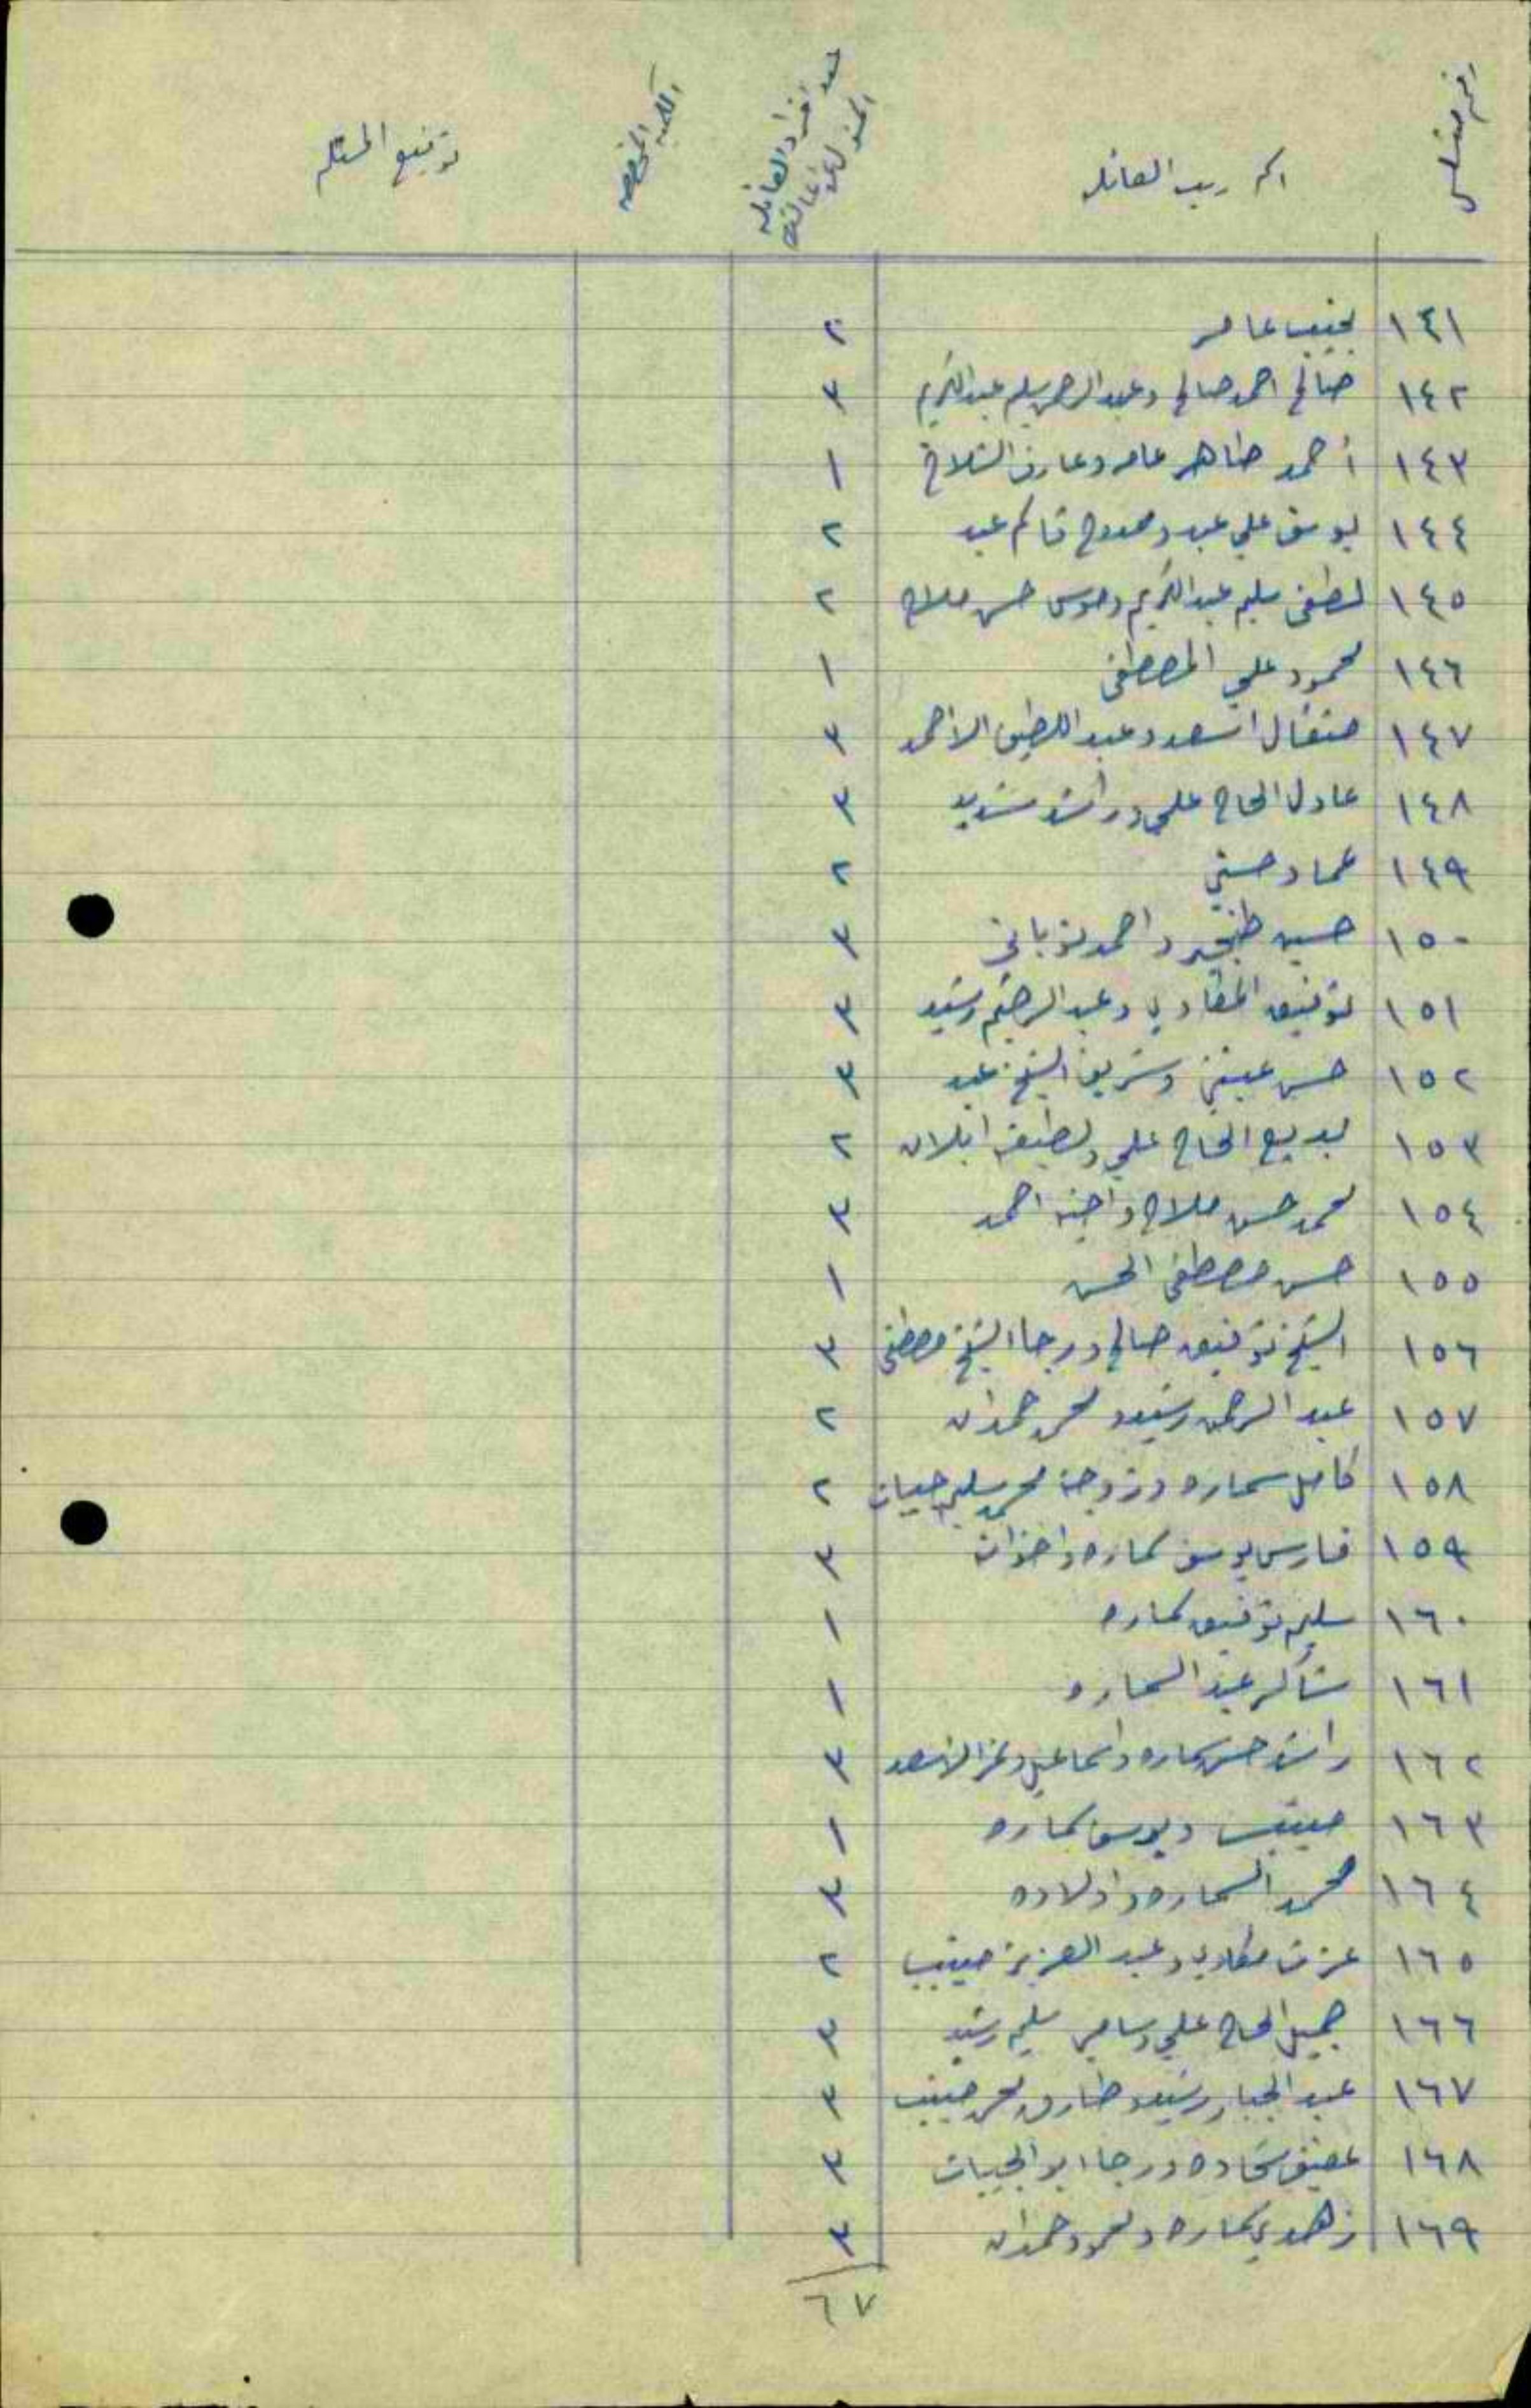 اسم رب العائله
عدد افراد العائله
توقيع المستلم
١٤١ نجيب عامر ٢
١٤٢ صالح احمد صالح وعبد الرحمن سليم عبد الكريم ٣
١٤٣ أحمد طاهر عامر وعارف الشلاح ١
١٤٤ يوسف علي عبد وممدوح قاسم عبد ٢
١٤٥ لطفي سليم عبد الكريم وموسى حسن ملاح ٢
١٤٦ محمود علي المصطفى ١
١٤٧ مثقال اسعد وعبد اللطيف الاحمد ٣
١٤٨ عادل الحاج علي وراشد شديد ٣
١٤٩ عماد حسني ٢
١٥٠ حسين واحمد توباني ٣
١٥١ توفيق المقادي وعبد الرحيم رشيد ٣
١٥٢ حسن عفيفي وشريف الشيخ عبد ٣
١٥٣ بديع الحاج علي ولطيفه ٢
١٥٤ محمد حسن ملاح واخيه احمد ٣
١٥٥ حسن مصطفى الحسن ١
١٥٦ الشيخ توفيق صالح ورجا الشيخ مصطفى ٣
١٥٧ عبد الرحمن رشيد و محمد حمدان ٢
١٥٨ كامل سماره وزوجة محمد سليم حبيات ٢
١٥٩ فارس يوسف سماره واخوان ٣
١٦٠ سليم توفيق سماره ١
١٦١ شاكر عبد السماره ١
١٦٢ راشد حسن سماره واسماعيل وعز الاسعد ٣
١٦٣ حبيب ويوسف سماره ١
١٦٤ محمد السماره واولاده ٣
١٦٥ عزت مقادي وعبد العزيز حبيب ٢
١٦٦ جميل الحاج علي وسامي سليم رشيد ٣
١٦٧ عبد الجبار رشيد و طارق محمد حبيب ٣
١٦٨ عفيف شحاده ورجا ابو الحبيات ٣
١٦٩ زهدي سماره ومحمود حمدان ٣
٦٧